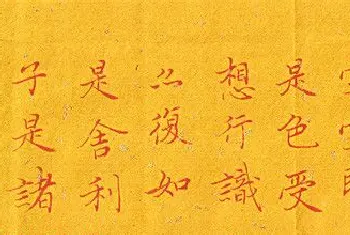 是色受
想行識
亦復如
是舍利
子是諸